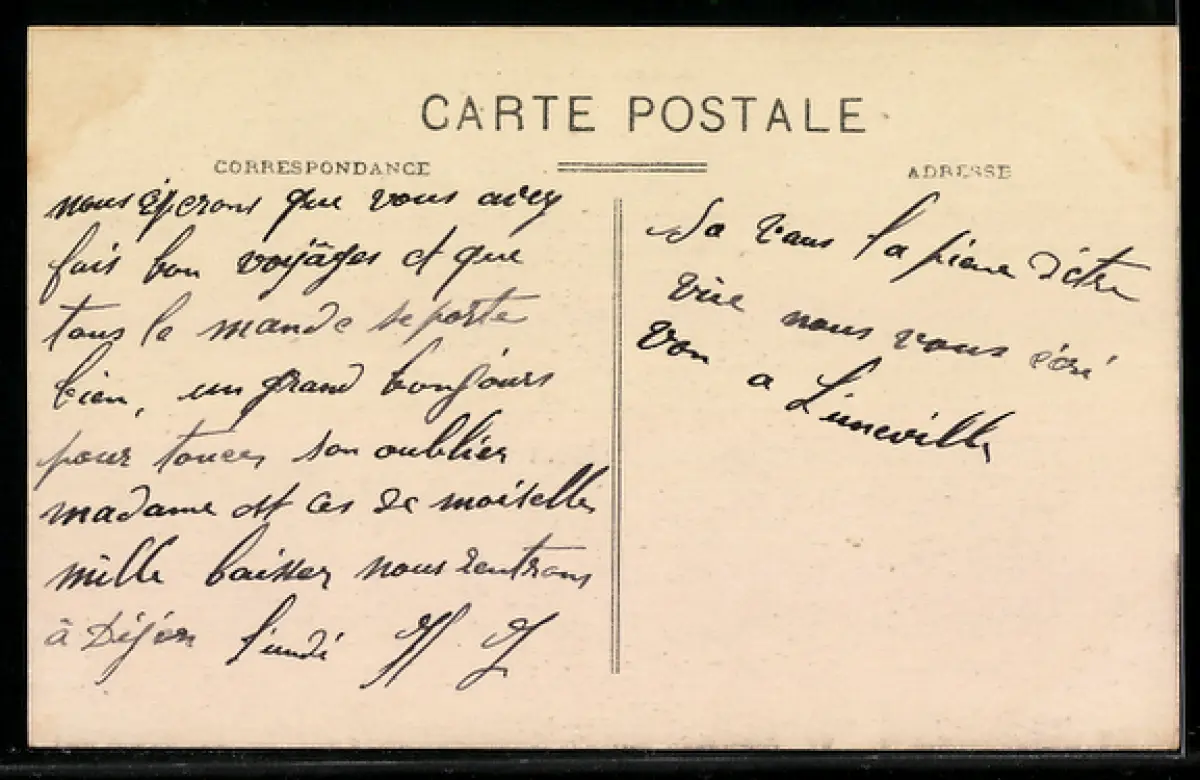 CARTE POSTALE
CORRESPONDANCE
ADRESSE
nous éperons que vous avez
fais bon voyâges et que
tous le monde se porte
bien, un grand bonjours
pour toutes, son oublier
madame et ces de moiselles
mille baisser nous rentrons
à Déjon lundi
Sa vaus la piene d'être
vue nous vous écri
von a Luneville